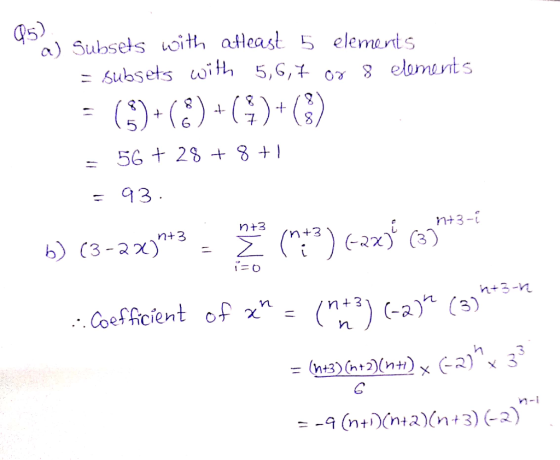 Q5)
a) Subsets with atleast 5 elements
= subsets with 5,6,7 or 8 elements
= (8 5) + (8 6) + (8 7) + (8 8)
= 56 + 28 + 8 + 1
= 93.
b) (3-2x)^{n+3} = ∑_{i=0}^{n+3} (n+3 i) (-2x)^i (3)^{n+3-i}
∴ Coefficient of x^n = (n+3 n) (-2)^n (3)^{n+3-n}
= (n+3)(n+2)(n+1)/6 × (-2)^n × 3^3
= -9 (n+1)(n+2)(n+3) (-2)^{n-1}